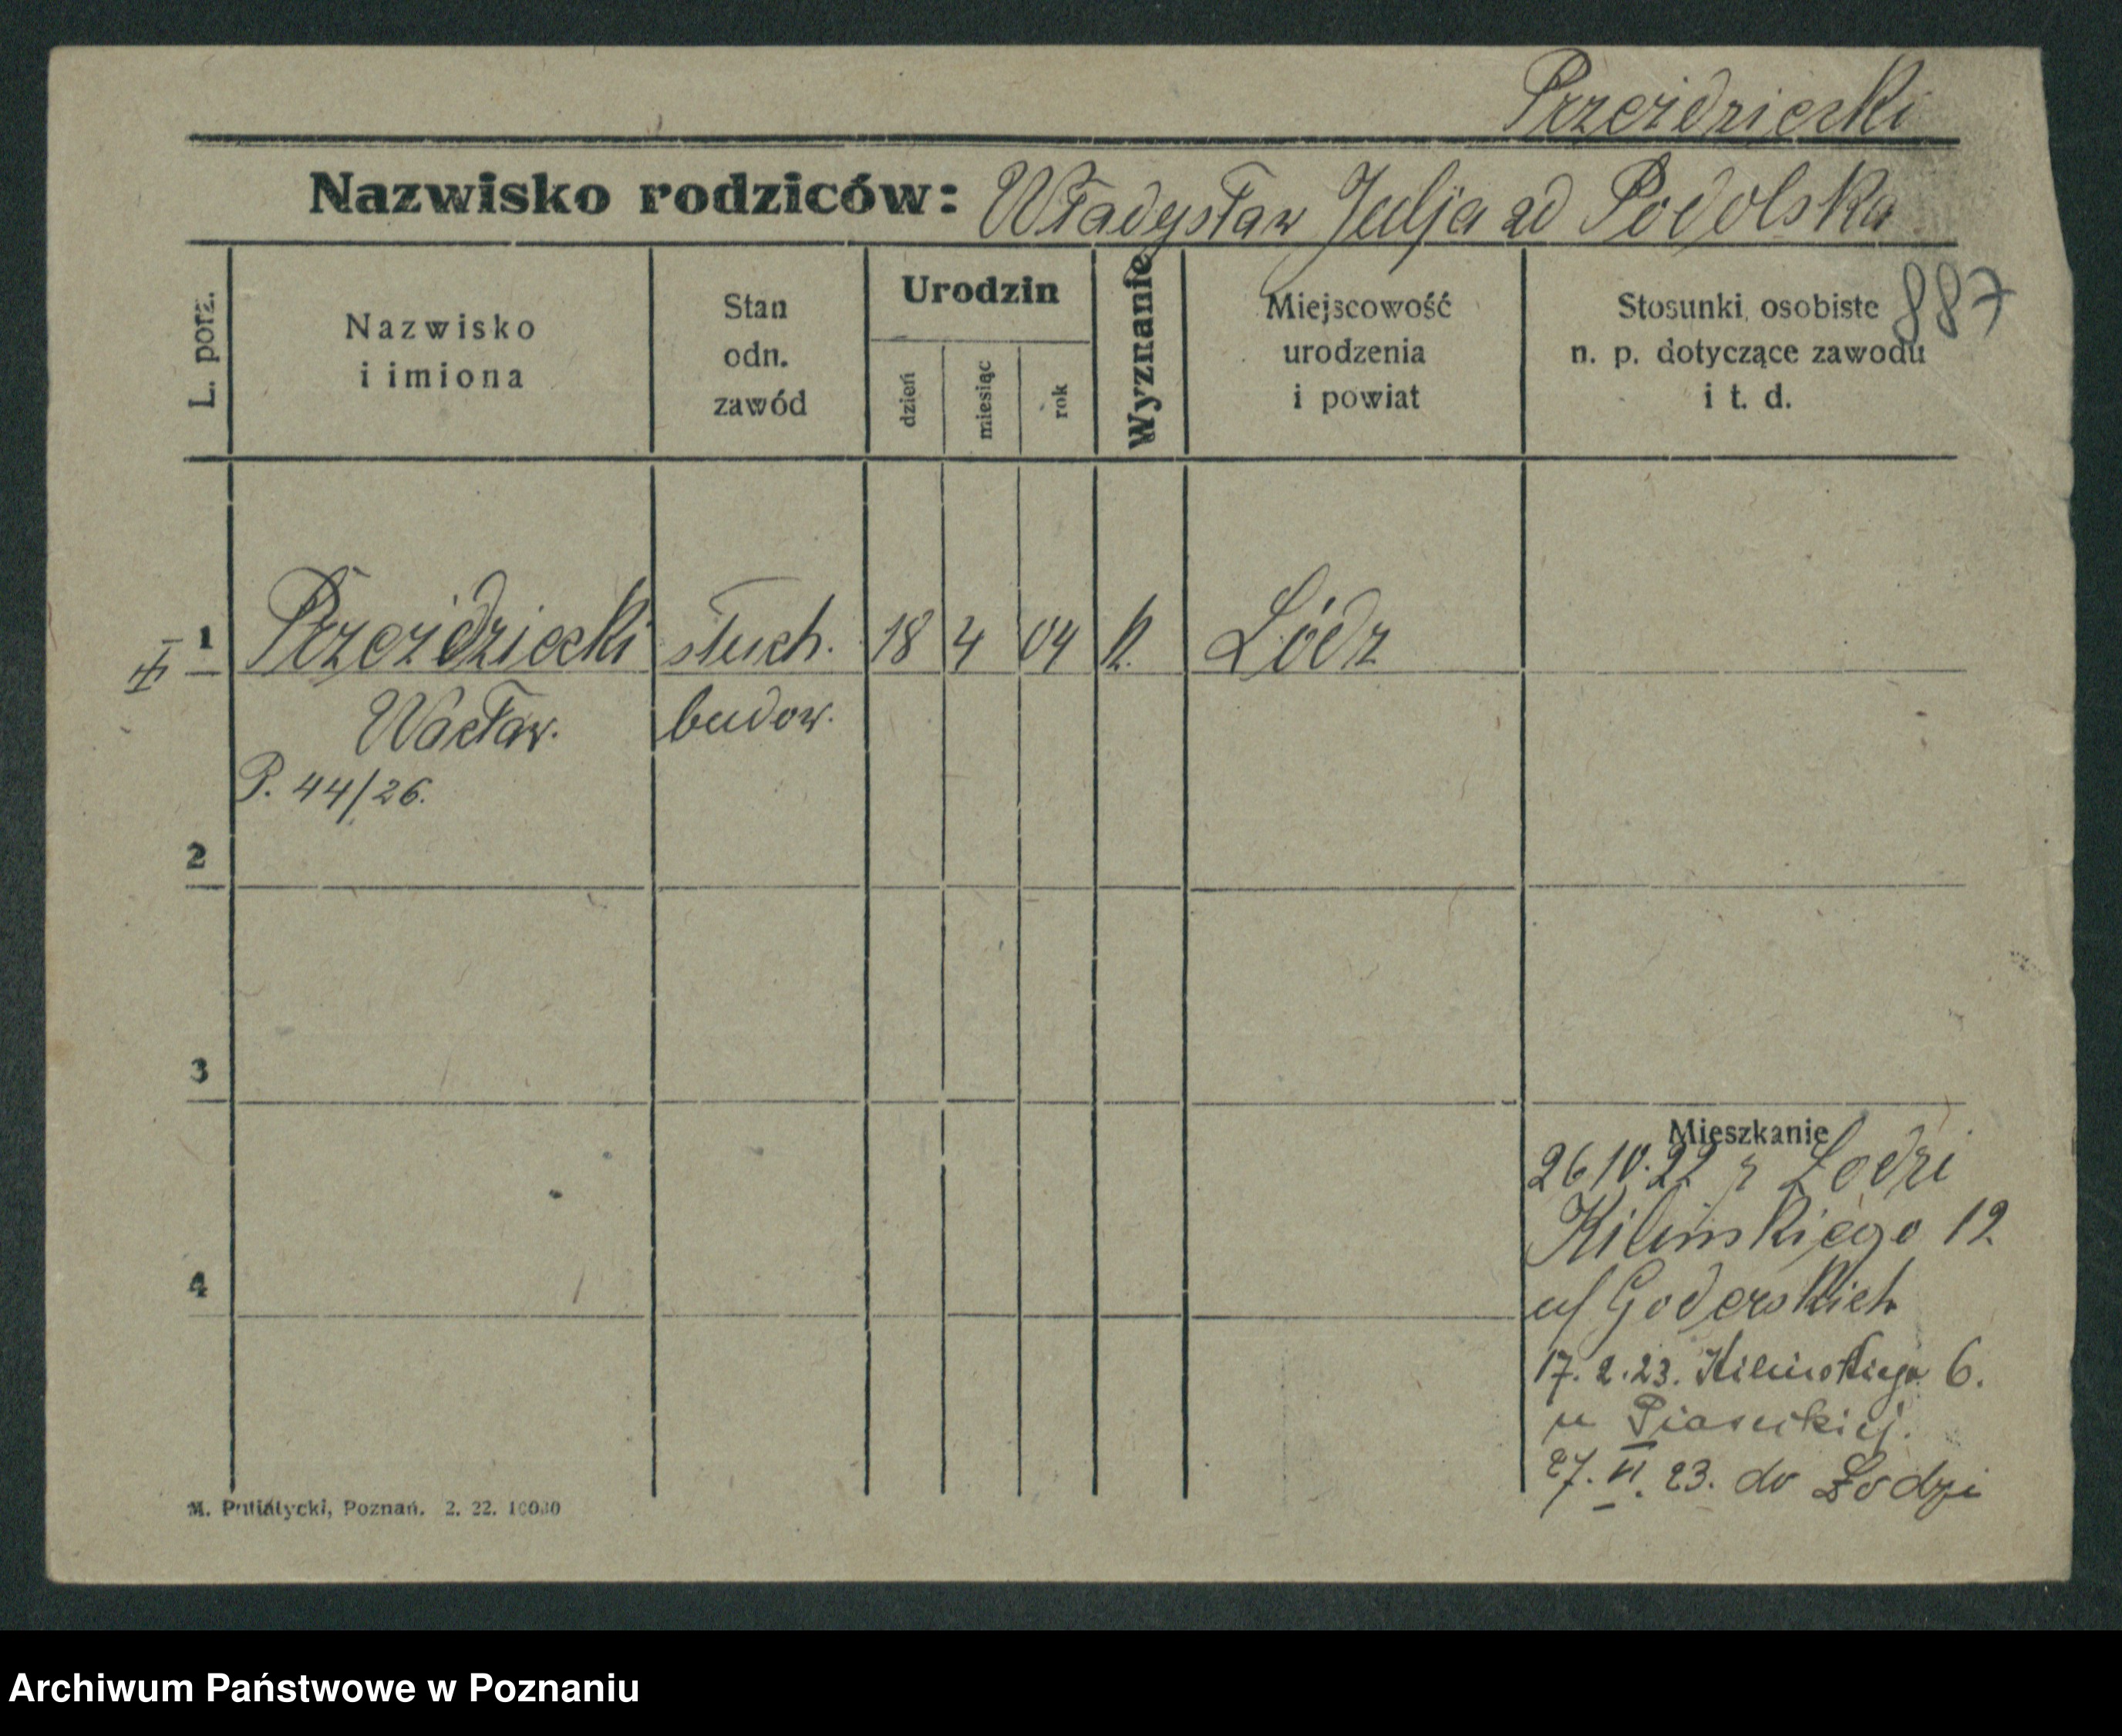 Przeździecki
Nazwisko rodziców: Władysław Julja zd Podolska
887
L. porz.
Nazwisko
i imiona
Stan
odn.
zawód
Urodzin
dzień
miesiąc
rok
Wyznanie
Miejscowość
urodzenia
i powiat
Stosunki osobiste
n. p. dotyczące zawodu
i t. d.
1 Przeździecki słuch. 18 4 04 k. Łódz
Wacław. budow.
P. 44/26.
2
3
Mieszkanie
26 10. 22 z Łodzi
Kilinskiego 12
4
u/ Goderskich
17. 2. 23. Kilinskiego 6.
u Piaseckiej.
27. VI. 23. do Łodzi
M. Putiatycki, Poznań. 2. 22. 10000
Archiwum Państwowe w Poznaniu